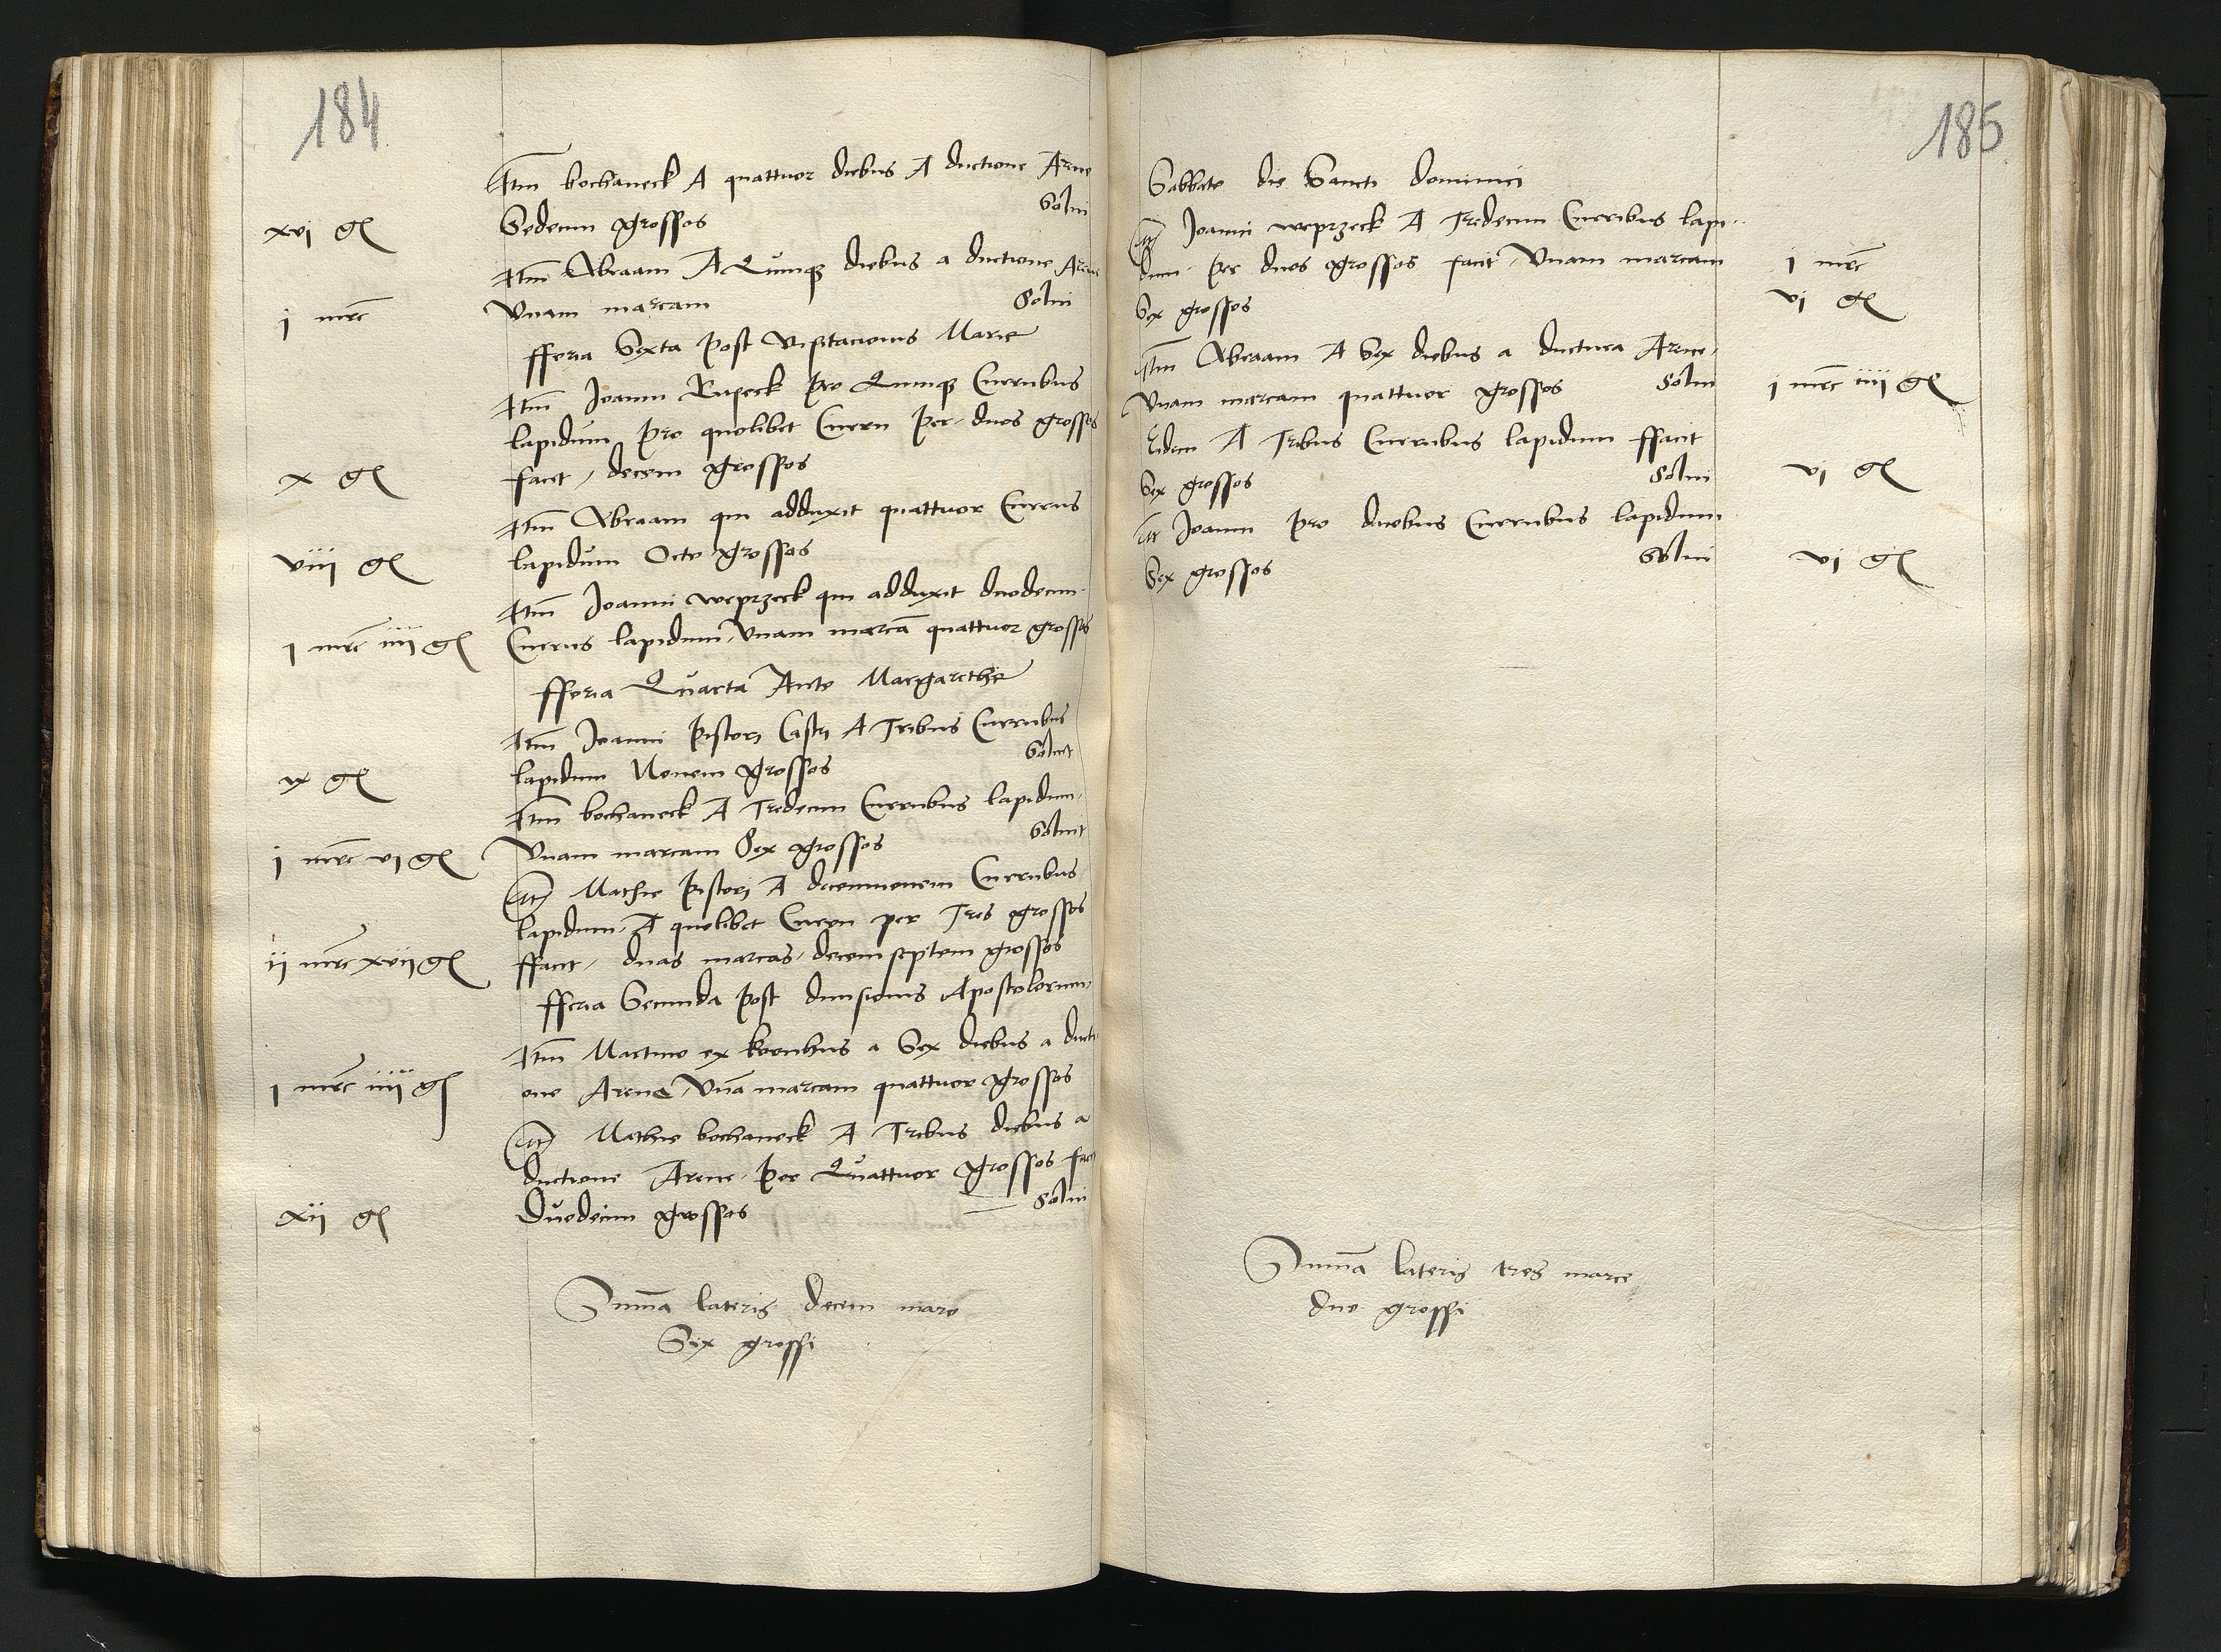 184
Itm kochaneck A quattuor diebus A ductione Arene
xvj gr Sedecim grossos Solui
Itm Abraam A Quinqz diebus a ductione Arene
j mrc Vnam marcam Solui
fferia Sexta post Visitacionis Marie
Itm Joanni Rupeck pro Quinqz Curribus
lapidum pro quolibet Curru per duos grossos
x gr facit, decem grossos
Itm Abraam qui adduxit quattuor Currus
viij gr lapidum Octo grossos
Itm Joanni weprzeck qui adduxit duodecim
j mrc iiij gr Currus lapidum, vnam marcā quattuor grossos
fferia Quarta Ante Margarethe
Itm Joanni pistorj Castrj A Tribus Curribus
ix gr lapidum Nouem grossos Soluit
Itm kochaneck A Tredecim Curribus lapidum
j mrc vj gr Vnam marcam Sex grossos Soluit
Itm Mathie pistorj A decemnouem Curribus
lapidum, A quolibet Curru per Tres grossos
ij mrc xvij gr ffacit, duas marcas, decem septem grossos
fferia Secunda post diuisionis Apostolorum
Itm Martino ex a Sex diebus a ducti
j mrc iiij gr one Arene, Vnā marcam quattuor grossos
Itm Mathie kochaneck A Tribus diebus a
ductione Arene per Quattuor grossos facit
xij gr Duodecim grossos Solui
Summa lateris decem marc
Sex grossi
185
Sabbato die Sancti dominici
Itm Joanni weprzeck A Tredecim Curribus lapi
dum per duos grossos facit, Vnam marcam j mrc
Sex grossos vj gr
Itm Abraam A Sex diebus a ductura Arene
Vnam marcam quattuor grossos Solui j mrc iiij gr
Eidem A Tribus Curribus lapidum ffacit
Sex grossos Solui vj gr
Itm Joanni pro duobus Curribus lapidum
Sex grossos Solui vj gr
Summa lateris tres marce
duo grossi